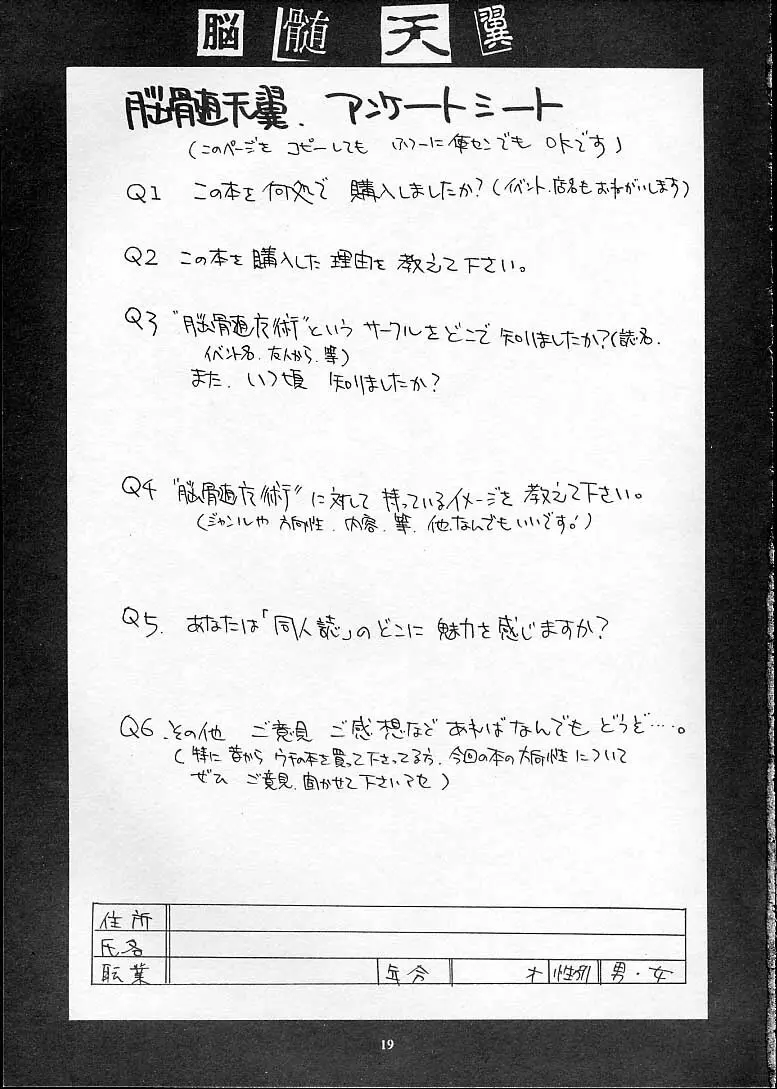 脳髄天翼
脳髄天翼、アンケートシート
(このページを コピーしても ふつーに便センでも OKです)
Q1 この本を何処で 購入しましたか?(イベント.店名もおねがいします)
Q2 この本を購入した理由を教えて下さい。
Q3 "脳髄魔術"という サークルをどこで 知りましたか?(誌名.
イベント名.友人から.等)
また、いつ頃 知りましたか?
Q4 "脳髄魔術"に対して 持っているイメージを 教えて下さい。
(ジャンルや 方向性.内容.等.他.なんでもいいです!)
Q5. あなたは「同人誌」のどこに 魅力を感じますか?
Q6.その他 ご意見 ご感想など あればなんでも どうぞ…。
(特に昔から ウチの本を買って下さってる方.今回の本の方向性について
ぜひ ご意見.聞かせて下さいませ)
住所
氏名
職業 年令 才 性別 男・女
19